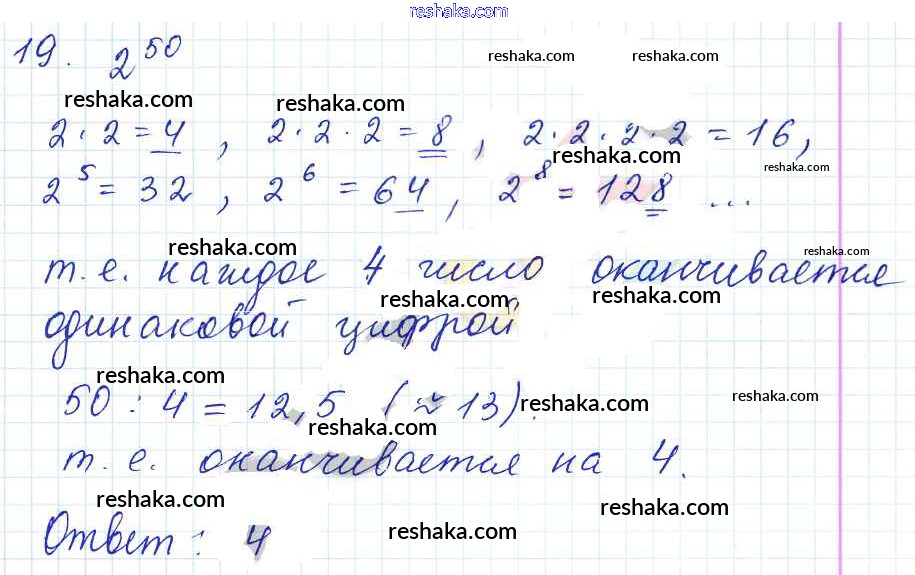 reshaka.com
19. 2^50
reshaka.com reshaka.com
reshaka.com reshaka.com
2 · 2 = 4 , 2 · 2 · 2 = 8 , 2 · 2 · 2 · 2 = 16,
reshaka.com reshaka.com
2^5 = 32 , 2^6 = 64 , 2^8 = 128 ...
reshaka.com reshaka.com
т.е. каждое 4 число оканчивается
reshaka.com reshaka.com
одинаковой цифрой
reshaka.com reshaka.com
50 : 4 = 12,5 (≈ 13).
reshaka.com reshaka.com reshaka.com
т.е. оканчивается на 4.
reshaka.com reshaka.com
Ответ: 4
reshaka.com reshaka.com